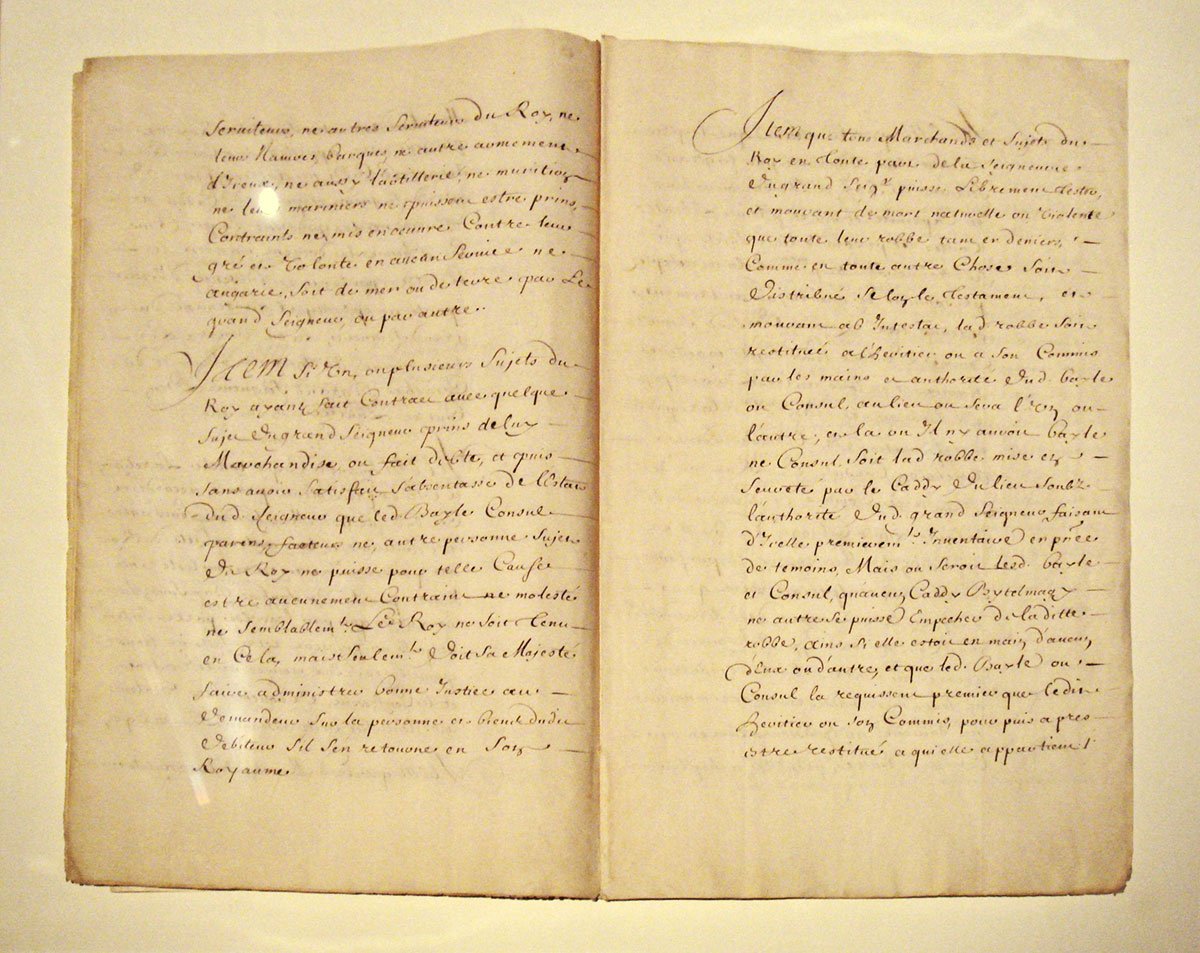 serviteurs, ne autres serviteurs du Roy, ne
leurs Navires, barques, ne autre armement
d'Iceux, ne aussy l'artillerie, ne munition
ne leurs mariniers ne puissent estre prins,
Contraints ne mis en oeuvre Contre leur
gré et Volonté en aucun Service ne
angarie, soit de mer ou de terre par Le
grand Seigneur, ou par autre.
Item Si Un, ou plusieurs Sujets du
Roy ayant fait Contract avec quelque
Sujet du grand Seigneur prins de luy
Marchandise, ou fait debte, et puis
sans avoir Satisfait S'absentasse de l'Estat
dud. Seigneur que led. Bayle Consul
parens, facteurs ne, autre personne Sujet
du Roy ne puisse pour telle Cause
estre aucunement Contraint ne molesté
ne Semblablemt. Led. Roy ne soit Tenu
en Cela, mais Seulemt. doit Sa Majesté
faire administrer bonne Justice au
demandeur Sur la personne et biens dudit
debiteur S'il S'en retourne en Son
Royaume
Item que tous Marchands et Sujets du
Roy en toute part de la Seigneurie
du grand Seigr. puisse Librement tester,
et mourant de mort naturelle ou Violente
que toute leur robbe tant en deniers,
Comme en toute autre Chose Soit
distribué Selon le testament, et
mourant ab Intestat, lad. robbe Soit
restituée a l'heritier ou a Son Commis
par les mains et authorité dud. bayle
ou Consul, au lieu ou Sera l'Un ou
l'autre, et la ou Il n'y auroit bayle
ne Consul Soit lad. robbe mise en
Seureté par le Caddy du lieu Soubz
l'authorité dud. grand Seigneur faisant
d'Icelle premieremt. Inventaire en pñce
de temoins, Mais ou Seroit lesd. bayle
et Consul, qu'aucun Caddy Baytelmagy
ne autre Se puisse Empecher de la ditte
robbe, ains Si elle estoit en main d'aucun
d'eux ou d'autre, et que led. Bayle ou
Consul la requissent premier que le dit
heritier ou Son Commis, pour puis apres
estre restitué a qui elle appartient